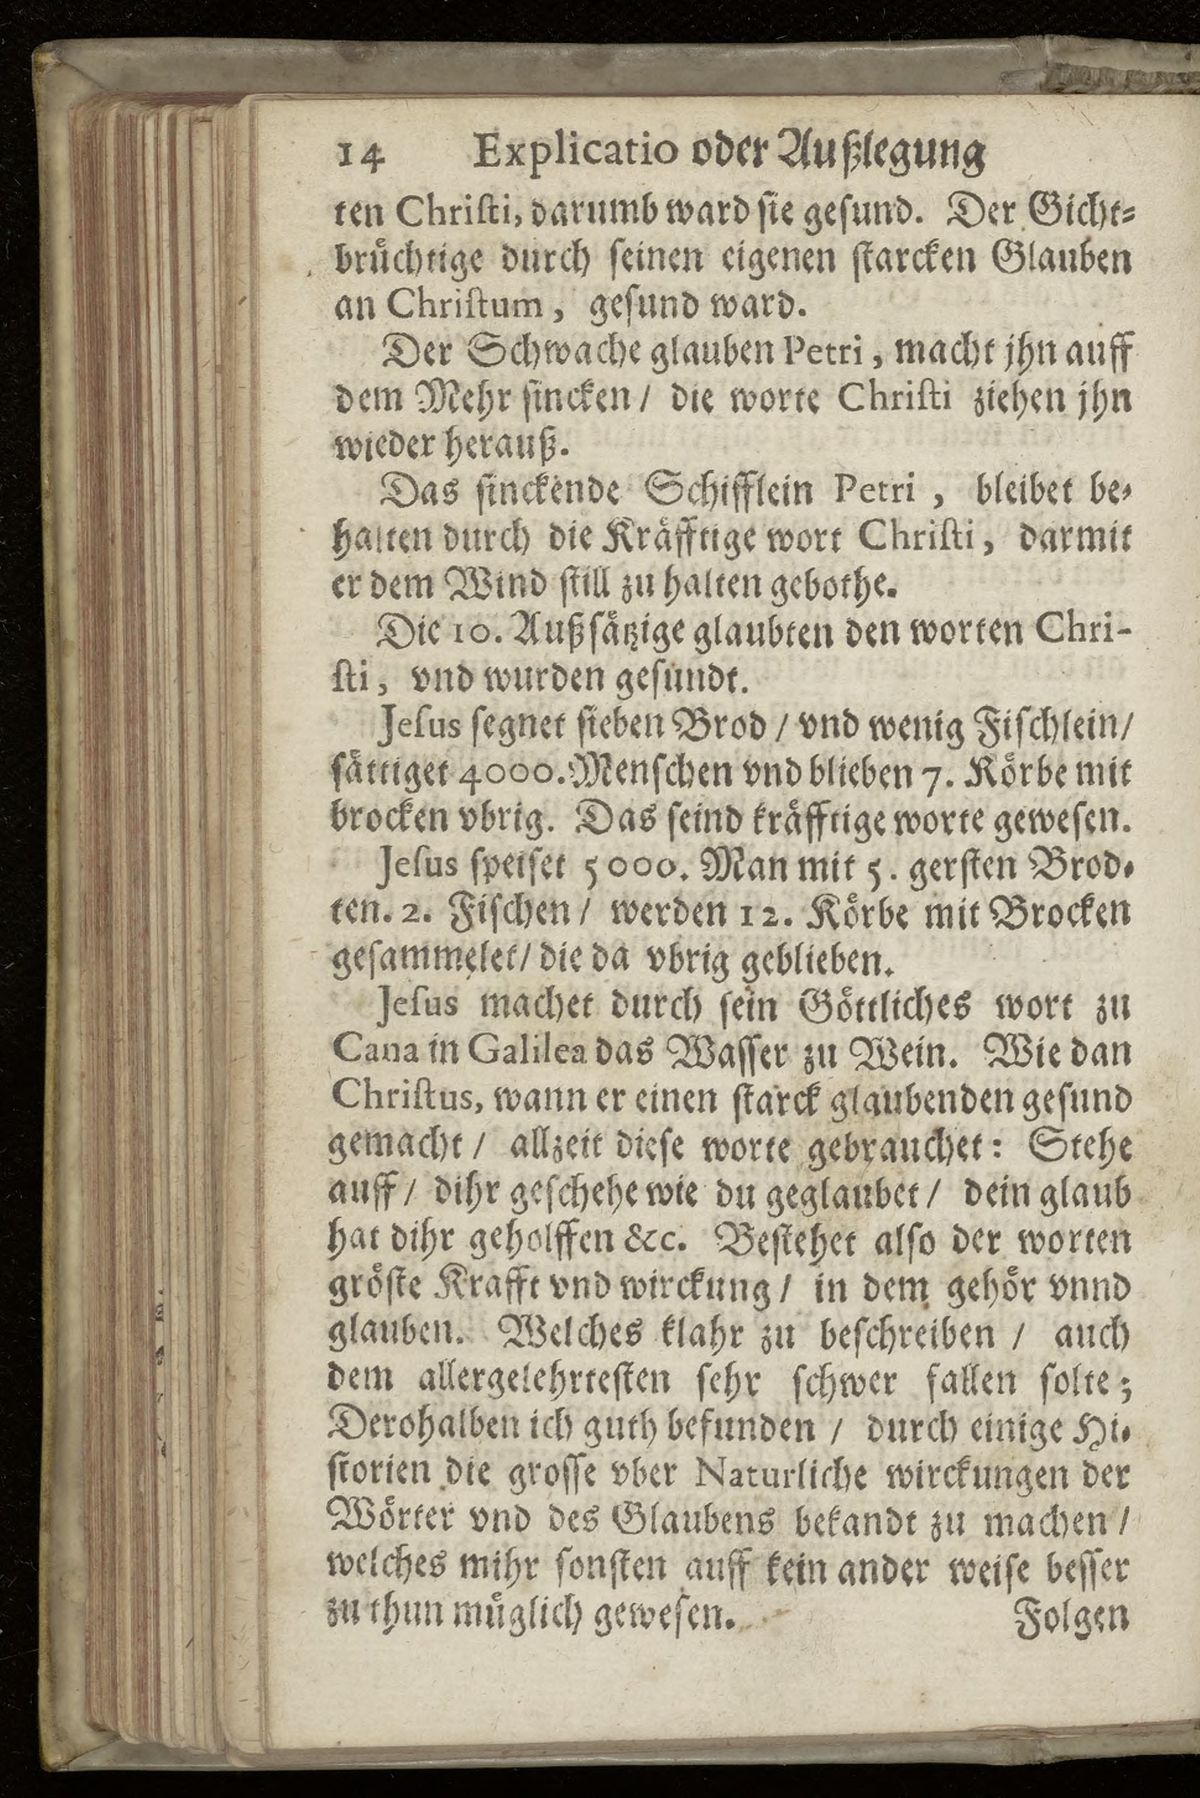 14 Explicatio oder Außlegung
ten Christi, darumb ward sie gesund. Der Gicht-
brüchtige durch seinen eigenen starcken Glauben
an Christum, gesund ward.
Der Schwache glauben Petri, macht jhn auff
dem Mehr sincken/ die worte Christi ziehen jhn
wieder herauß.
Das sinckende Schifflein Petri, bleibet be-
halten durch die Kräfftige wort Christi, darmit
er dem Wind still zu halten gebothe.
Die 10. Außsätzige glaubten den worten Chri-
sti, vnd wurden gesundt.
Jesus segnet sieben Brod/ vnd wenig Fischlein/
sättiget 4000. Menschen vnd blieben 7. Körbe mit
brocken vbrig. Das seind kräfftige worte gewesen.
Jesus speiset 5000. Man mit 5. gersten Brod-
ten. 2. Fischen/ werden 12. Körbe mit Brocken
gesammelet/ die da vbrig geblieben.
Jesus machet durch sein Göttliches wort zu
Cana in Galilea das Wasser zu Wein. Wie dan
Christus, wann er einen starck glaubenden gesund
gemacht/ allzeit diese worte gebrauchet: Stehe
auff/ dihr geschehe wie du geglaubet/ dein glaub
hat dihr geholffen &c. Bestehet also der worten
gröste Krafft vnd wirckung/ in dem gehör vnnd
glauben. Welches klahr zu beschreiben/ auch
dem allergelehrtesten sehr schwer fallen solte;
Derohalben ich guth befunden/ durch einige Hi-
storien die grosse vber Naturliche wirckungen der
Wörter vnd des Glaubens bekandt zu machen/
welches mihr sonsten auff kein ander weise besser
zu thun müglich gewesen. Folgen